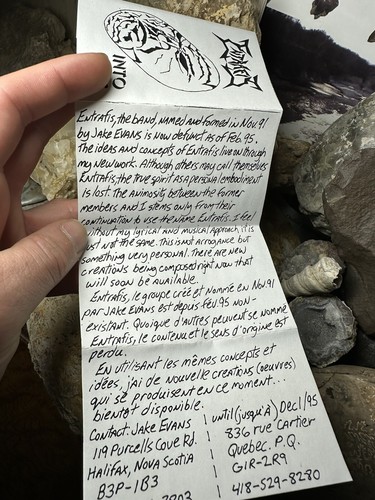 INTO
ENTRAFIS
Entrafis, the band, named and formed in Nov. 91
by Jake Evans is now defunct as of Feb. 95,
the ideas and concepts of Entrafis live on through
my new work. Although others may call themselves
Entrafis, the true spirit as a personal embodiment
is lost. The animosity between the former
members and I stems only from their
continuation to use the name Entrafis. I feel
without my lyrical and musical approach, it is
just not the same. This is not arrogance but
something very personal. There are new
creations being composed right now that
will soon be available.
Entrafis, le groupe créé et nommé en Nov 91
par Jake Evans est depuis Fév. 95 non-
existant. Quoique d'autres peuvent se nommé
Entrafis, le contenu et le sens d'origine est
perdu.
En utilisant les mèmes concepts et
idées, j'ai de nouvelle creations (oeuvres)
qui se produisent en ce moment...
bientôt disponible.
Contact: Jake Evans
119 Purcells Cove Rd.
Halifax, Nova Scotia
B3P-1B3
until (jusqu'à) Dec 1/95
836 rue Cartier
Quebec. P.Q.
G1R-2R9
418-529-8280